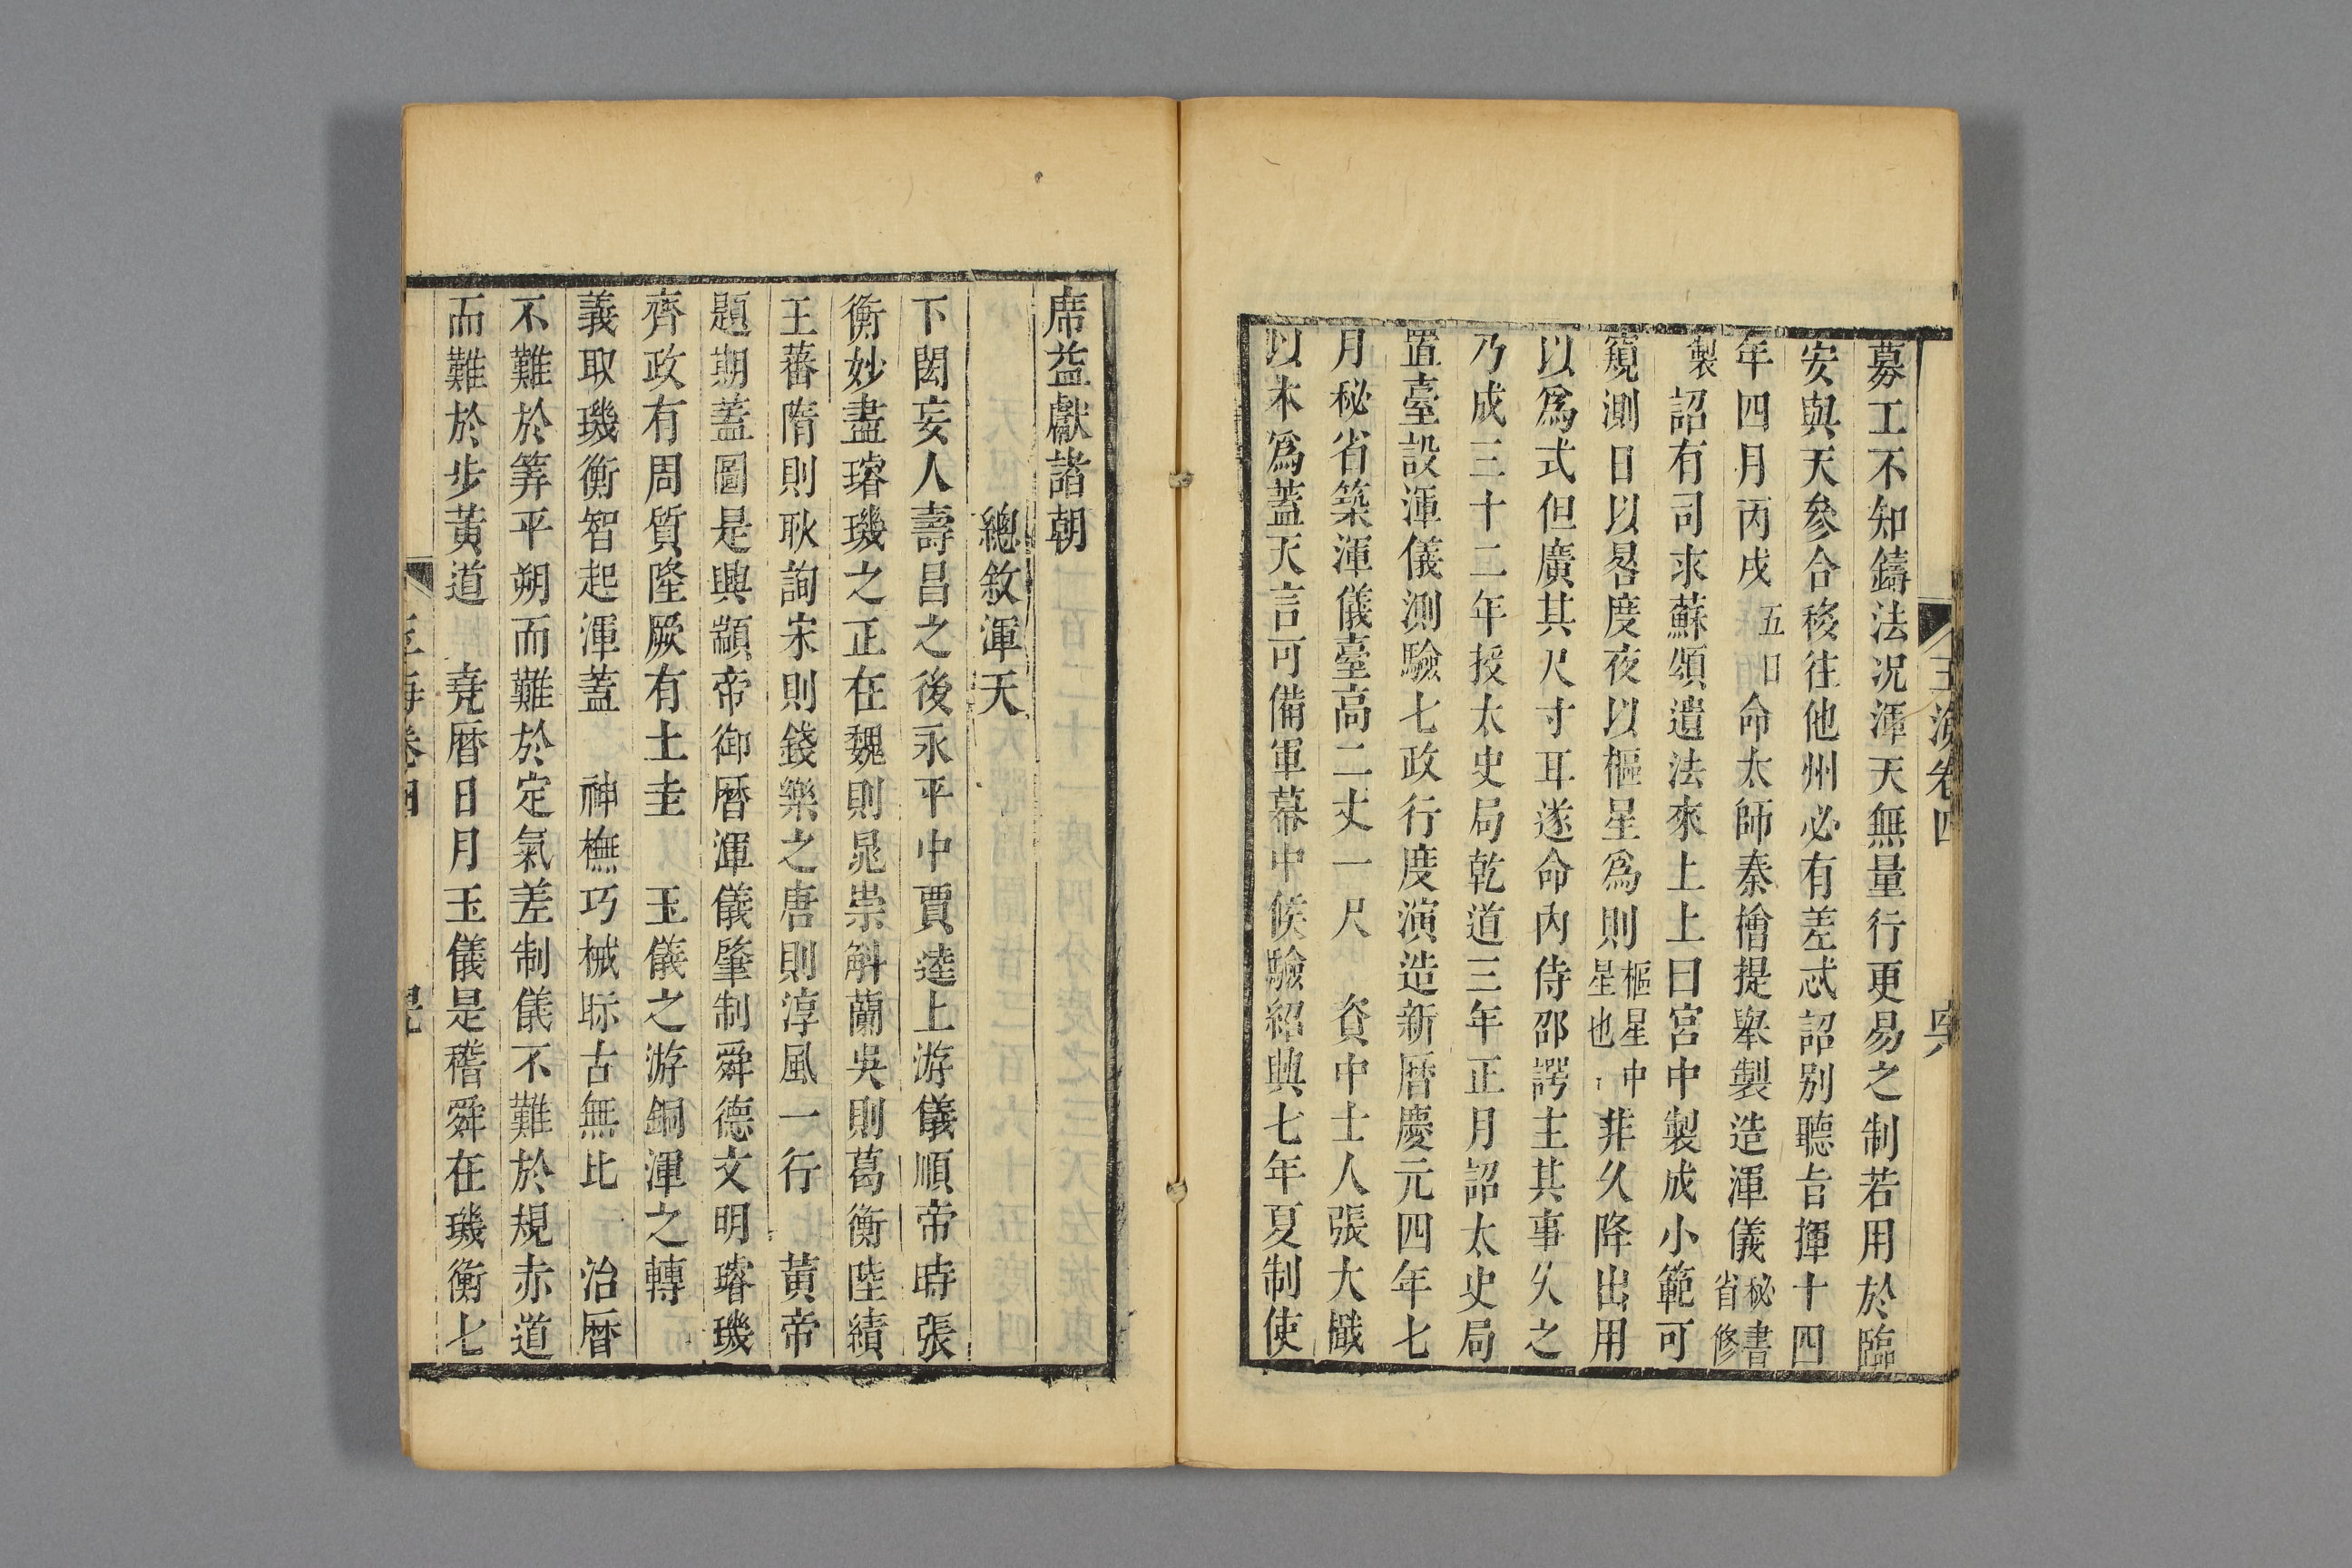 玉海卷四
募工不知鑄法况渾天無量行更易之制若用於臨
安與天參合移往他州必有差忒詔别聽旨揮十四
年四月丙戌五日命太師秦檜提舉製造渾儀秘書省修
製詔有司求蘇頌遺法來上上曰宮中製成小範可
窺測日以晷度夜以樞星爲則樞星中星也非久降出用
以爲式但廣其尺寸耳遂命内侍邵諤主其事久之
乃成三十二年授太史局乾道三年正月詔太史局
置臺設渾儀測驗七政行度演造新曆慶元四年七
月秘省築渾儀臺高二丈一尺 資中士人張大檝
以木爲蓋天言可備軍幕中候驗紹興七年夏制使
席益獻諸朝
總敘渾天
下閎妄人壽昌之後永平中賈逵上游儀順帝時張
衡妙盡璿璣之正在魏則晁崇斛蘭吳則葛衡陸績
王蕃隋則耿詢宋則錢樂之唐則淳風一行 黃帝
題期蓋圖是興顓帝御曆渾儀肇制舜德文明璿璣
齊政有周質隆厥有土圭 玉儀之游銅渾之轉
義取璣衡智起渾蓋 神橅巧械眎古無比 治曆
不難於筭平朔而難於定氣差制儀不難於規赤道
而難於步黃道 堯曆日月玉儀是稽舜在璣衡七
玉海卷四